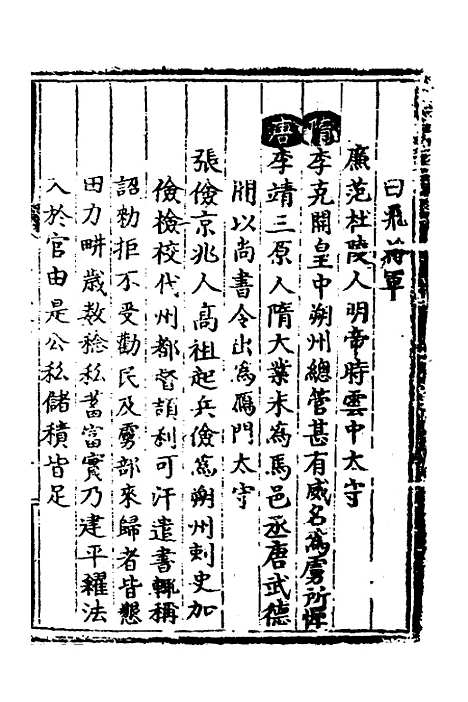 曰飛將軍
廉范杜陵人明帝時雲中太守
隋
李充開皇中朔州總管甚有威名為虜所憚
唐
李靖三原人隋大業末為馬邑丞唐武德
間以尚書令出為鴈門太守
張儉京兆人高祖起兵儉為朔州刺史加
儉檢校代州都督頡利可汗遣書輒稱
詔勑拒不受勸民及虜部來歸者皆懇
田力畊歲数稔私蓄富實乃建平糴法
入於官由是公私儲積皆足